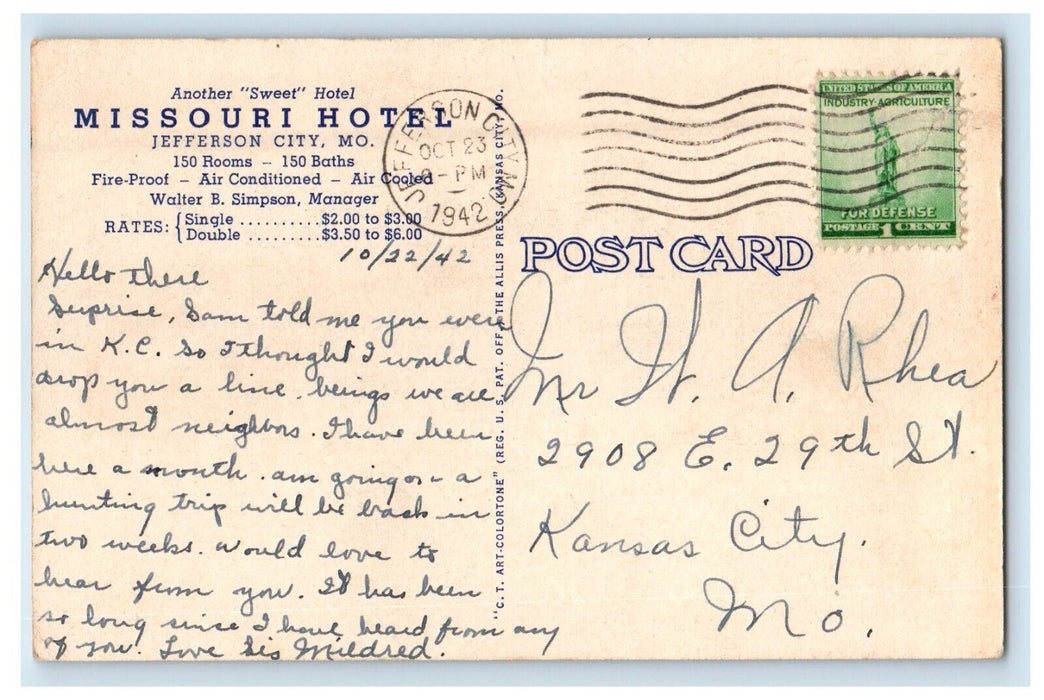 Another "Sweet" Hotel
MISSOURI HOTEL
JEFFERSON CITY, MO.
150 Rooms – 150 Baths
Fire-Proof – Air Conditioned – Air Cooled
Walter B. Simpson, Manager
RATES: { Single ..........$2.00 to $3.00
Double .........$3.50 to $6.00
JEFFERSON CITY, MO.
OCT 23
PM
1942
UNITED STATES OF AMERICA
INDUSTRY·AGRICULTURE
FOR DEFENSE
POSTAGE 1 CENT
"C. T. ART-COLORTONE" (REG. U. S. PAT. OFF.) THE ALLIS PRESS, KANSAS CITY, MO.
POST CARD
10/22/42
Hello there
Surprise, Sam told me you were
in K.C. So I thought I would
drop you a line. beings we are
almost neighbors. I have been
here a month. am going on a
hunting trip will be back in
two weeks. would love to
hear from you. It has been
so long since I have heard from any
of you. Love Sis Mildred.
Mr W. A. Rhea
2908 E. 29th St.
Kansas City.
Mo.